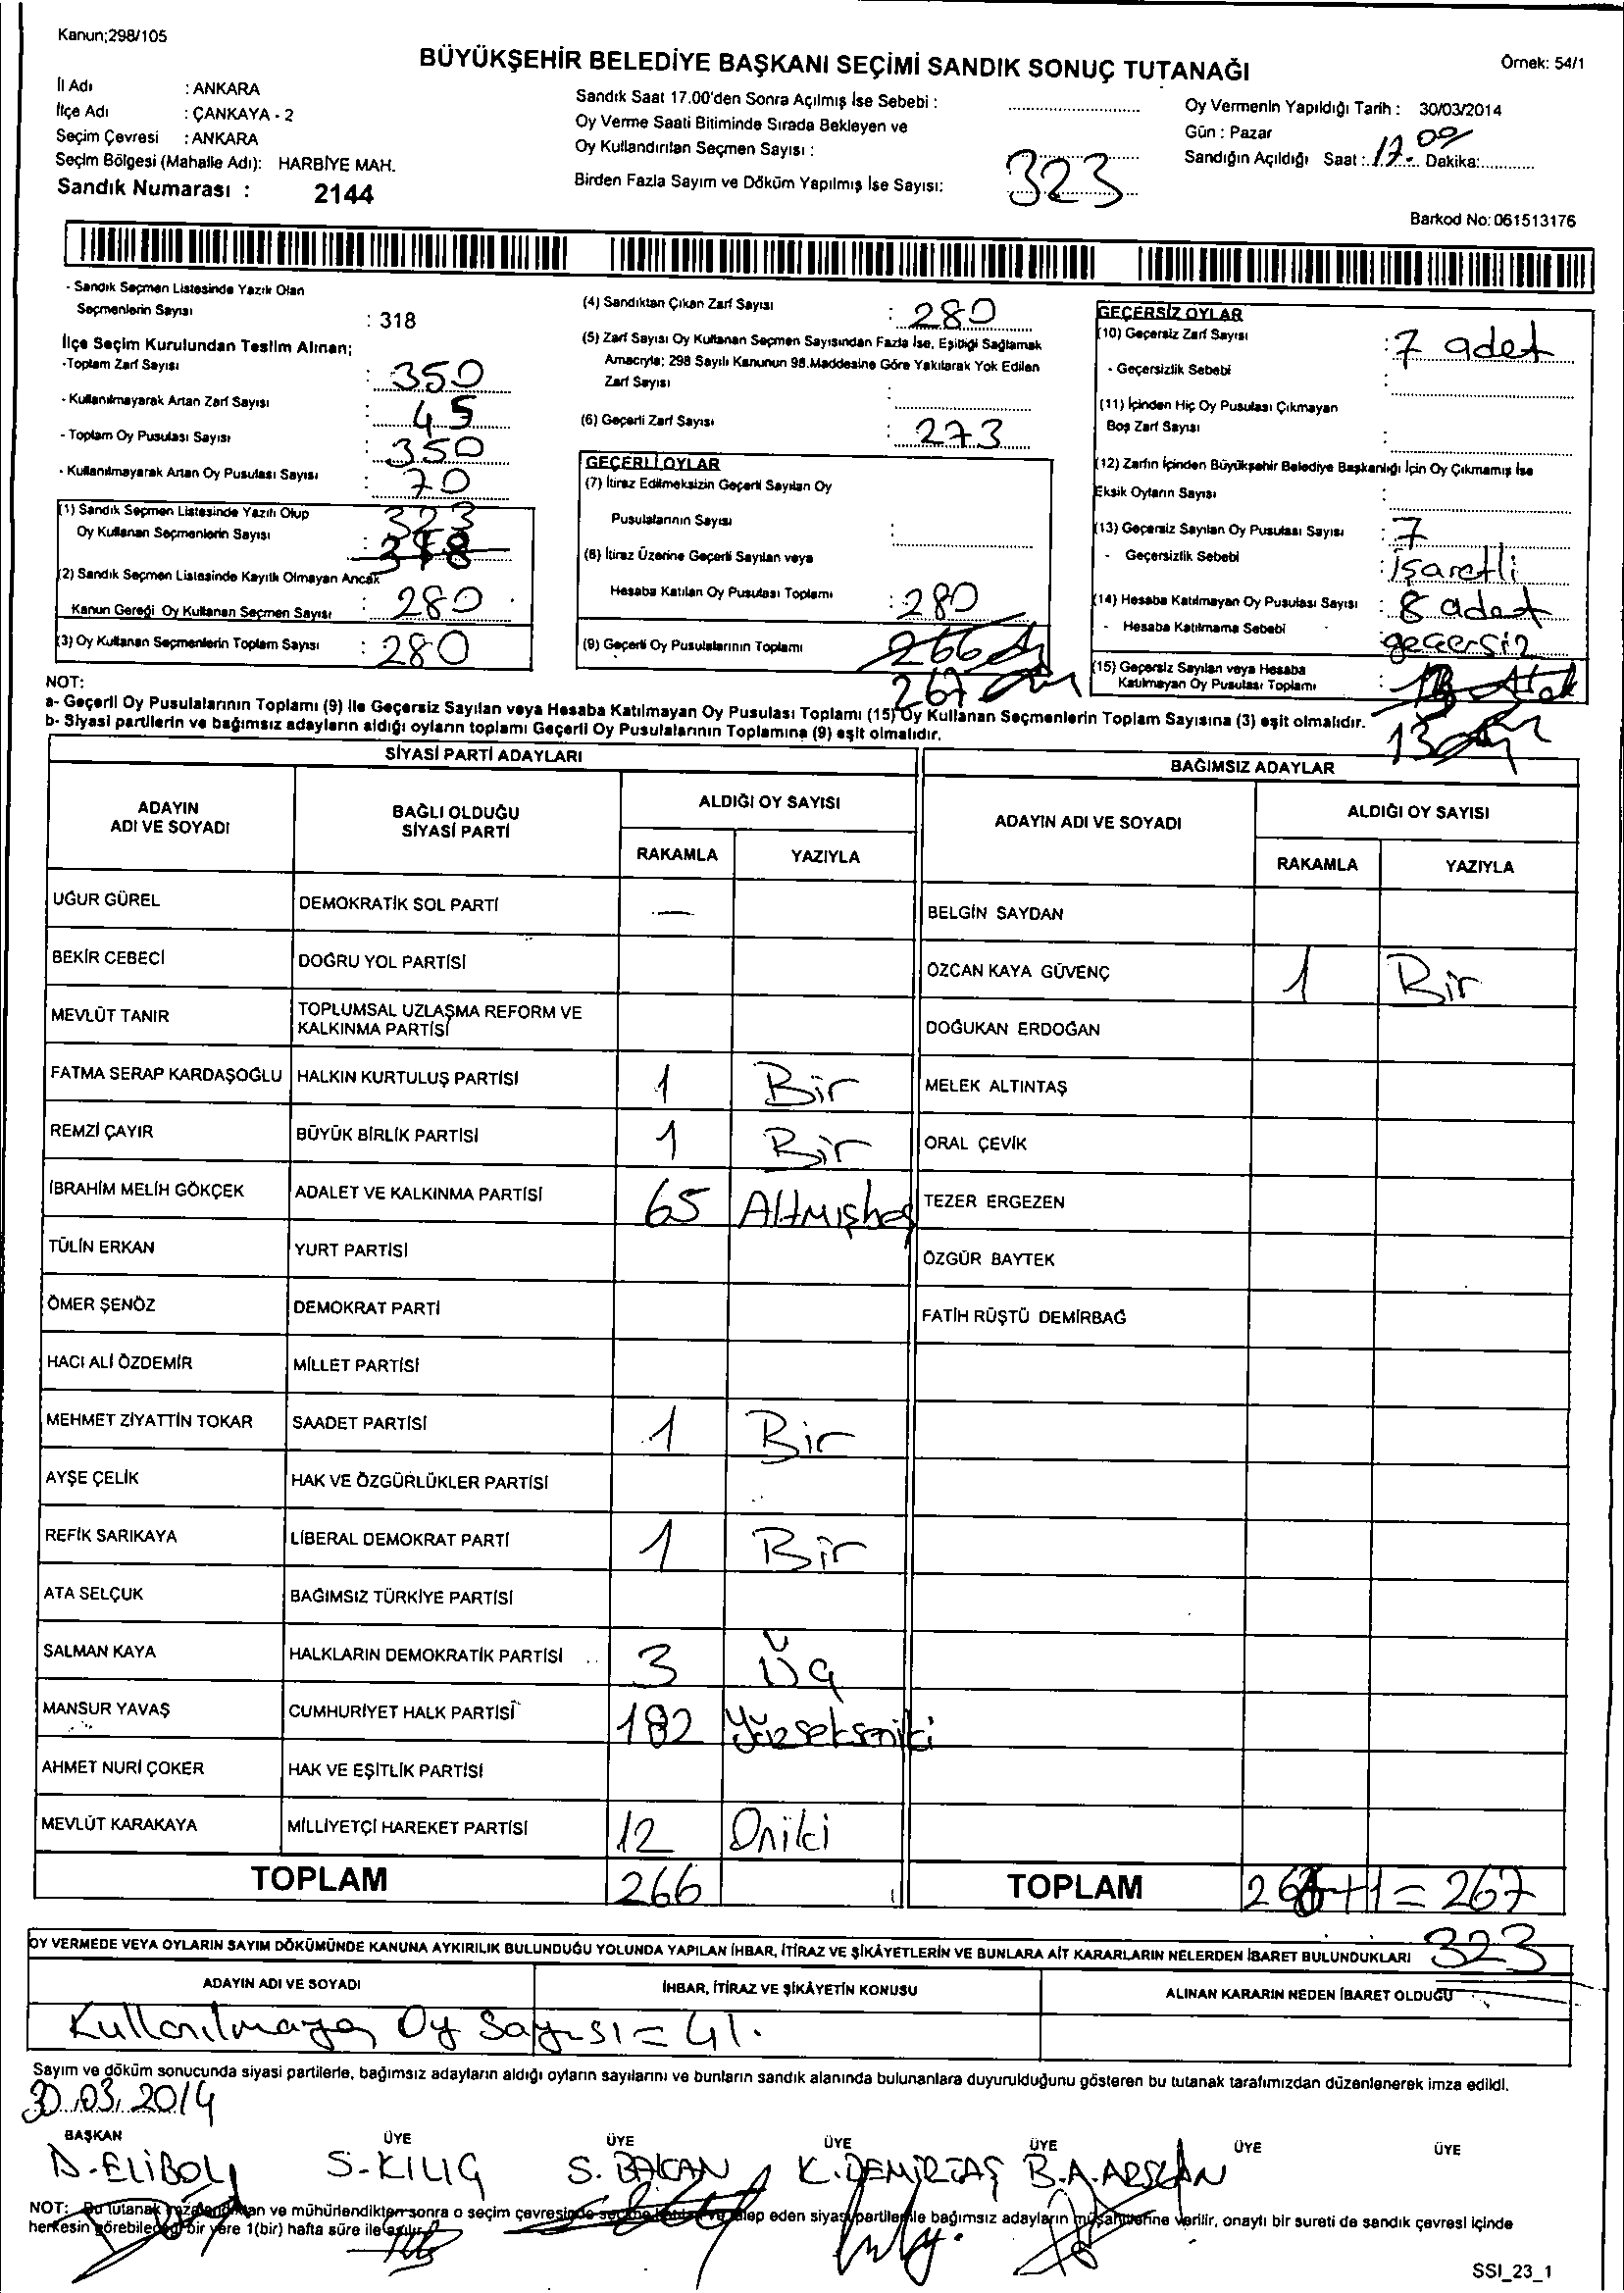 Kanun;298/105
BÜYÜKŞEHİR BELEDİYE BAŞKANI SEÇİMİ SANDIK SONUÇ TUTANAĞI
Örnek: 54/1
İl Adı : ANKARA
İlçe Adı : ÇANKAYA - 2
Seçim Çevresi : ANKARA
Seçim Bölgesi (Mahalle Adı): HARBİYE MAH.
Sandık Numarası : 2144
Sandık Saat 17.00'den Sonra Açılmış İse Sebebi :
Oy Verme Saati Bitiminde Sırada Bekleyen ve
Oy Kullandırılan Seçmen Sayısı :
Birden Fazla Sayım ve Döküm Yapılmış İse Sayısı: 323
Oy Vermenin Yapıldığı Tarih : 30/03/2014
Gün : Pazar
Sandığın Açıldığı Saat : 17.00 Dakika:
Barkod No: 061513176
- Sandık Seçmen Listesinde Yazılı Olan
Seçmenlerin Sayısı : 318
İlçe Seçim Kurulundan Teslim Alınan;
-Toplam Zarf Sayısı : 350
- Kullanılmayarak Artan Zarf Sayısı : 45
- Toplam Oy Pusulası Sayısı : 350
- Kullanılmayarak Artan Oy Pusulası Sayısı : 70
(1) Sandık Seçmen Listesinde Yazılı Olup 323
Oy Kullanan Seçmenlerin Sayısı : 318
(2) Sandık Seçmen Listesinde Kayıtlı Olmayan Ancak
Kanun Gereği Oy Kullanan Seçmen Sayısı : 280
(3) Oy Kullanan Seçmenlerin Toplam Sayısı : 280
(4) Sandıktan Çıkan Zarf Sayısı : 280
(5) Zarf Sayısı Oy Kullanan Seçmen Sayısından Fazla İse, Eşitliği Sağlamak
Amacıyla; 298 Sayılı Kanunun 98.Maddesine Göre Yakılarak Yok Edilen
Zarf Sayısı :
(6) Geçerli Zarf Sayısı : 273
GEÇERLİ OYLAR
(7) İtiraz Edilmeksizin Geçerli Sayılan Oy
Pusulalarının Sayısı :
(8) İtiraz Üzerine Geçerli Sayılan veya
Hesaba Katılan Oy Pusulası Toplamı : 280
(9) Geçerli Oy Pusulalarının Toplamı 266
267
GEÇERSİZ OYLAR
(10) Geçersiz Zarf Sayısı : 7 adet
- Geçersizlik Sebebi :
(11) İçinden Hiç Oy Pusulası Çıkmayan
Boş Zarf Sayısı :
(12) Zarfın İçinden Büyükşehir Belediye Başkanlığı İçin Oy Çıkmamış İse
Eksik Oyların Sayısı :
(13) Geçersiz Sayılan Oy Pusulası Sayısı : 7
- Geçersizlik Sebebi : işaretli
(14) Hesaba Katılmayan Oy Pusulası Sayısı : 8 adet
- Hesaba Katılmama Sebebi : geçersiz
(15) Geçersiz Sayılan veya Hesaba
Katılmayan Oy Pusulası Toplamı :
13
NOT:
a- Geçerli Oy Pusulalarının Toplamı (9) ile Geçersiz Sayılan veya Hesaba Katılmayan Oy Pusulası Toplamı (15) Oy Kullanan Seçmenlerin Toplam Sayısına (3) eşit olmalıdır.
b- Siyasi partilerin ve bağımsız adayların aldığı oyların toplamı Geçerli Oy Pusulalarının Toplamına (9) eşit olmalıdır.
SİYASİ PARTİ ADAYLARI
BAĞIMSIZ ADAYLAR
ADAYIN ADI VE SOYADI
BAĞLI OLDUĞU SİYASİ PARTİ
ALDIĞI OY SAYISI
RAKAMLA YAZIYLA
ADAYIN ADI VE SOYADI
ALDIĞI OY SAYISI
RAKAMLA YAZIYLA
UĞUR GÜREL DEMOKRATİK SOL PARTİ — BELGİN SAYDAN
BEKİR CEBECİ DOĞRU YOL PARTİSİ ÖZCAN KAYA GÜVENÇ 1 Bir
MEVLÜT TANIR TOPLUMSAL UZLAŞMA REFORM VE KALKINMA PARTİSİ DOĞUKAN ERDOĞAN
FATMA SERAP KARDAŞOĞLU HALKIN KURTULUŞ PARTİSİ 1 Bir MELEK ALTINTAŞ
REMZİ ÇAYIR BÜYÜK BİRLİK PARTİSİ 1 Bir ORAL ÇEVİK
İBRAHİM MELİH GÖKÇEK ADALET VE KALKINMA PARTİSİ 65 Altmışbeş TEZER ERGEZEN
TÜLİN ERKAN YURT PARTİSİ ÖZGÜR BAYTEK
ÖMER ŞENÖZ DEMOKRAT PARTİ FATİH RÜŞTÜ DEMİRBAĞ
HACI ALİ ÖZDEMİR MİLLET PARTİSİ
MEHMET ZİYATTİN TOKAR SAADET PARTİSİ 1 Bir
AYŞE ÇELİK HAK VE ÖZGÜRLÜKLER PARTİSİ
REFİK SARIKAYA LİBERAL DEMOKRAT PARTİ 1 Bir
ATA SELÇUK BAĞIMSIZ TÜRKİYE PARTİSİ
SALMAN KAYA HALKLARIN DEMOKRATİK PARTİSİ 3 Üç
MANSUR YAVAŞ CUMHURİYET HALK PARTİSİ 182 Yüzsekseniki
AHMET NURİ ÇOKER HAK VE EŞİTLİK PARTİSİ
MEVLÜT KARAKAYA MİLLİYETÇİ HAREKET PARTİSİ 12 Oniki
TOPLAM 266 TOPLAM 266+1 = 267
OY VERMEDE VEYA OYLARIN SAYIM DÖKÜMÜNDE KANUNA AYKIRILIK BULUNDUĞU YOLUNDA YAPILAN İHBAR, İTİRAZ VE ŞİKÂYETLERİN VE BUNLARA AİT KARARLARIN NELERDEN İBARET BULUNDUKLARI 323
ADAYIN ADI VE SOYADI İHBAR, İTİRAZ VE ŞİKÂYETİN KONUSU ALINAN KARARIN NEDEN İBARET OLDUĞU
Kullanılmayan Oy Sayısı = 41.
Sayım ve döküm sonucunda siyasi partilerle, bağımsız adayların aldığı oyların sayılarını ve bunların sandık alanında bulunanlara duyurulduğunu gösteren bu tutanak tarafımızdan düzenlenerek imza edildi.
30.03.2014
BAŞKAN ÜYE ÜYE ÜYE ÜYE ÜYE ÜYE
D.ELİBOL S-KILIÇ S. BAKAN K.DEMİRTAŞ B.A.ARSLAN
NOT: Bu tutanak ve mühürlendikten sonra o seçim çevresinde talep eden siyasi partiler ile bağımsız adayların müşahitlerine verilir, onaylı bir sureti de sandık çevresi içinde
herkesin görebileceği bir yere 1(bir) hafta süre ile asılır.
SSI_23_1